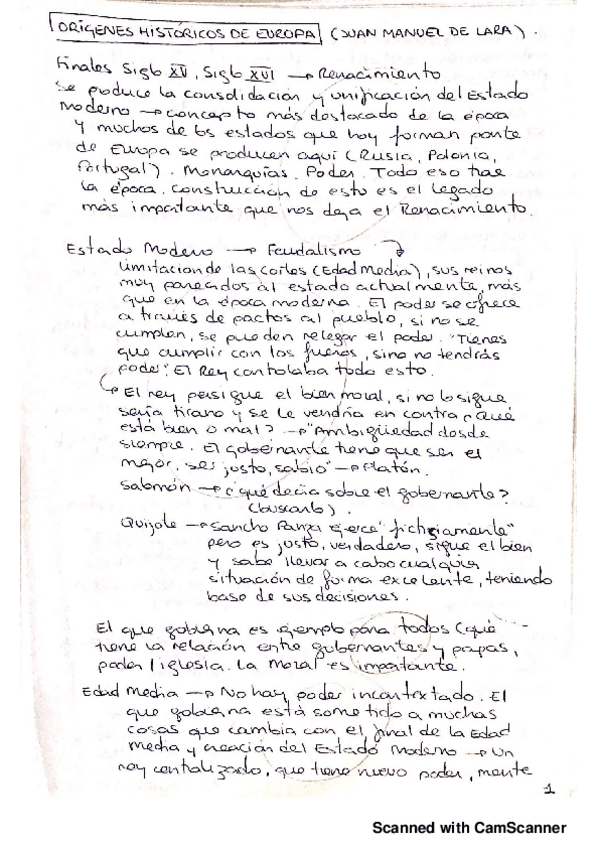 ORÍGENES HISTÓRICOS DE EUROPA (JUAN MANUEL DE LARA).
Finales Siglo XV, Siglo XVI → Renacimiento
Se produce la consolidación y unificación del Estado
Moderno → concepto más destacado de la época
y muchos de los estados que hoy forman parte
de Europa se producen aquí (Rusia, Polonia,
Portugal). Monarquías. Poder. Todo eso trae
la época. Construcción de esto es el legado
más importante que nos deja el Renacimiento.
Estado Moderno → Feudalismo
limitación de las cortes (Edad Media), sus reinos
muy parecidos al estado actualmente, más
que en la época moderna. El poder se ofrece
a través de pactos al pueblo, si no se
cumplen, se pueden relegar el poder. "Tienes
que cumplir con los fueros, sino no tendrás
poder". El Rey controlaba todo esto.
El rey persigue el bien moral, si no lo sigue
sería tirano y se le vendría en contra ¿Qué
está bien o mal? → "Ambigüedad desde
siempre. El gobernante tiene que ser el
mejor, ser justo, sabio" → Platón.
Salomón → ¿qué decía sobre el gobernante?
(buscarlo).
Quijote → Sancho Panza ejerce "fictiamente"
pero es justo, verdadero, sigue el bien
y sabe llevar a cabo cualquier
situación de forma excelente, teniendo
base de sus decisiones.
El que gobierna es ejemplo para todos (qué
tiene la relación entre gobernantes y papas,
poder / iglesia. La moral es importante.
Edad Media → No hay poder incontextado. El
que gobierna está sometido a muchas
cosas que cambia con el final de la Edad
Media y creación del Estado Moderno → Un
rey centralizado, que tiene nuevo poder, mente
1
Scanned with CamScanner